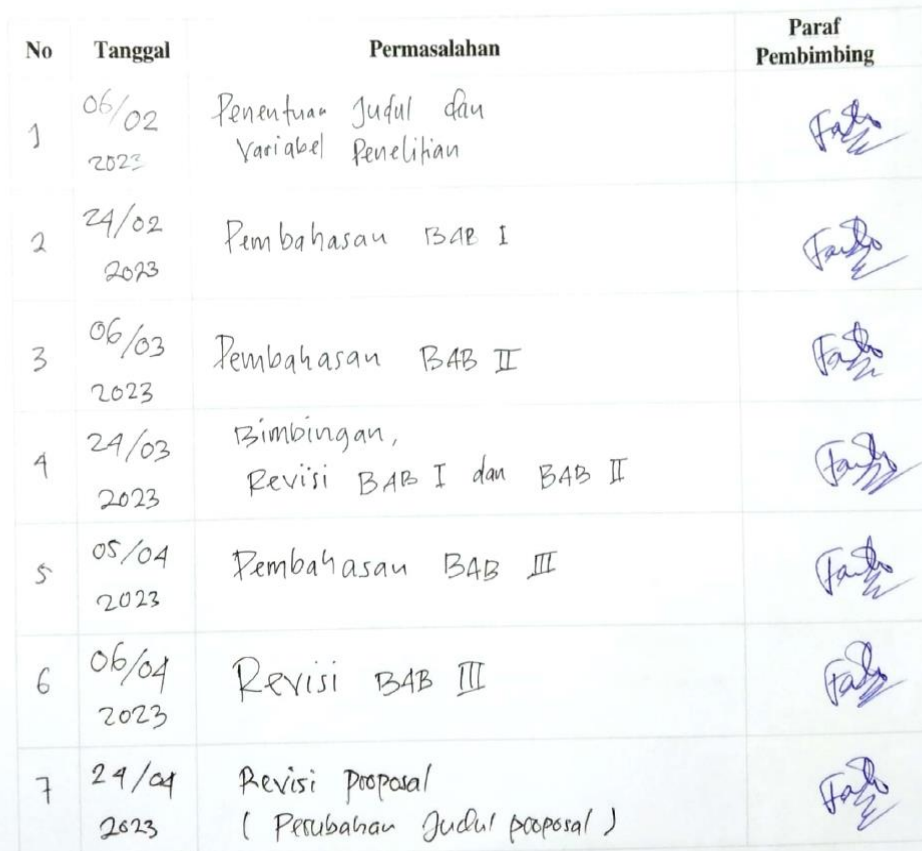 No Tanggal Permasalahan Paraf Pembimbing
1 06/02 2023 Penentuan Judul dan
Variabel Penelitian
2 24/02 2023 Pembahasan BAB I
3 06/03 2023 Pembahasan BAB II
4 24/03 2023 Bimbingan,
Revisi BAB I dan BAB II
5 05/04 2023 Pembahasan BAB III
6 06/04 2023 Revisi BAB III
7 24/04 2023 Revisi proposal
( Perubahan Judul proposal )